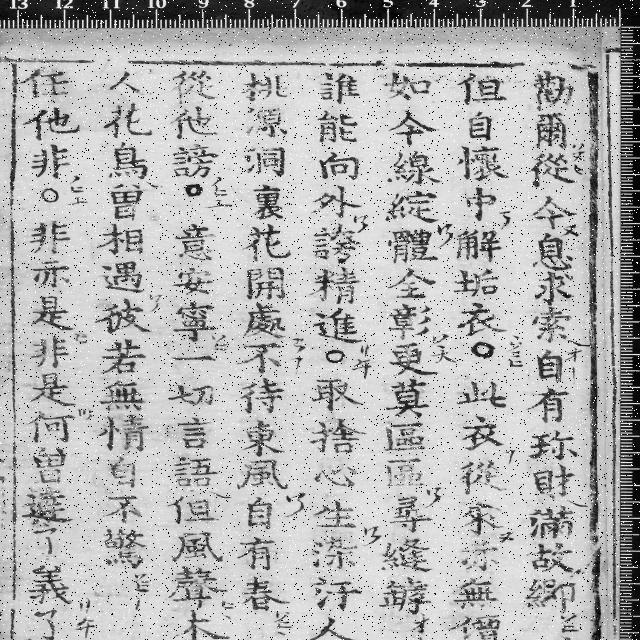 13 12 11 10 9 8 7 6 5 4 3 2 1
勸爾從今息求索自有珎財滿故鄉
但自懷中解垢衣○此衣從來亦無
如今線綻體全彰更莫區區尋縫罅
誰能向外誇精進○取捨心生染汙人
桃源洞裏花開處不待東風自有春
從他謗○意安寧一切言語但風聲木
人花鳥曾相遇彼若無情自不驚
任他非○非亦是非是何曾達了義了